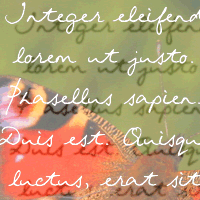 Integer eleifend
lorem ut justo.
Phasellus sapien.
Duis est. Quisqu
luctus, erat sit